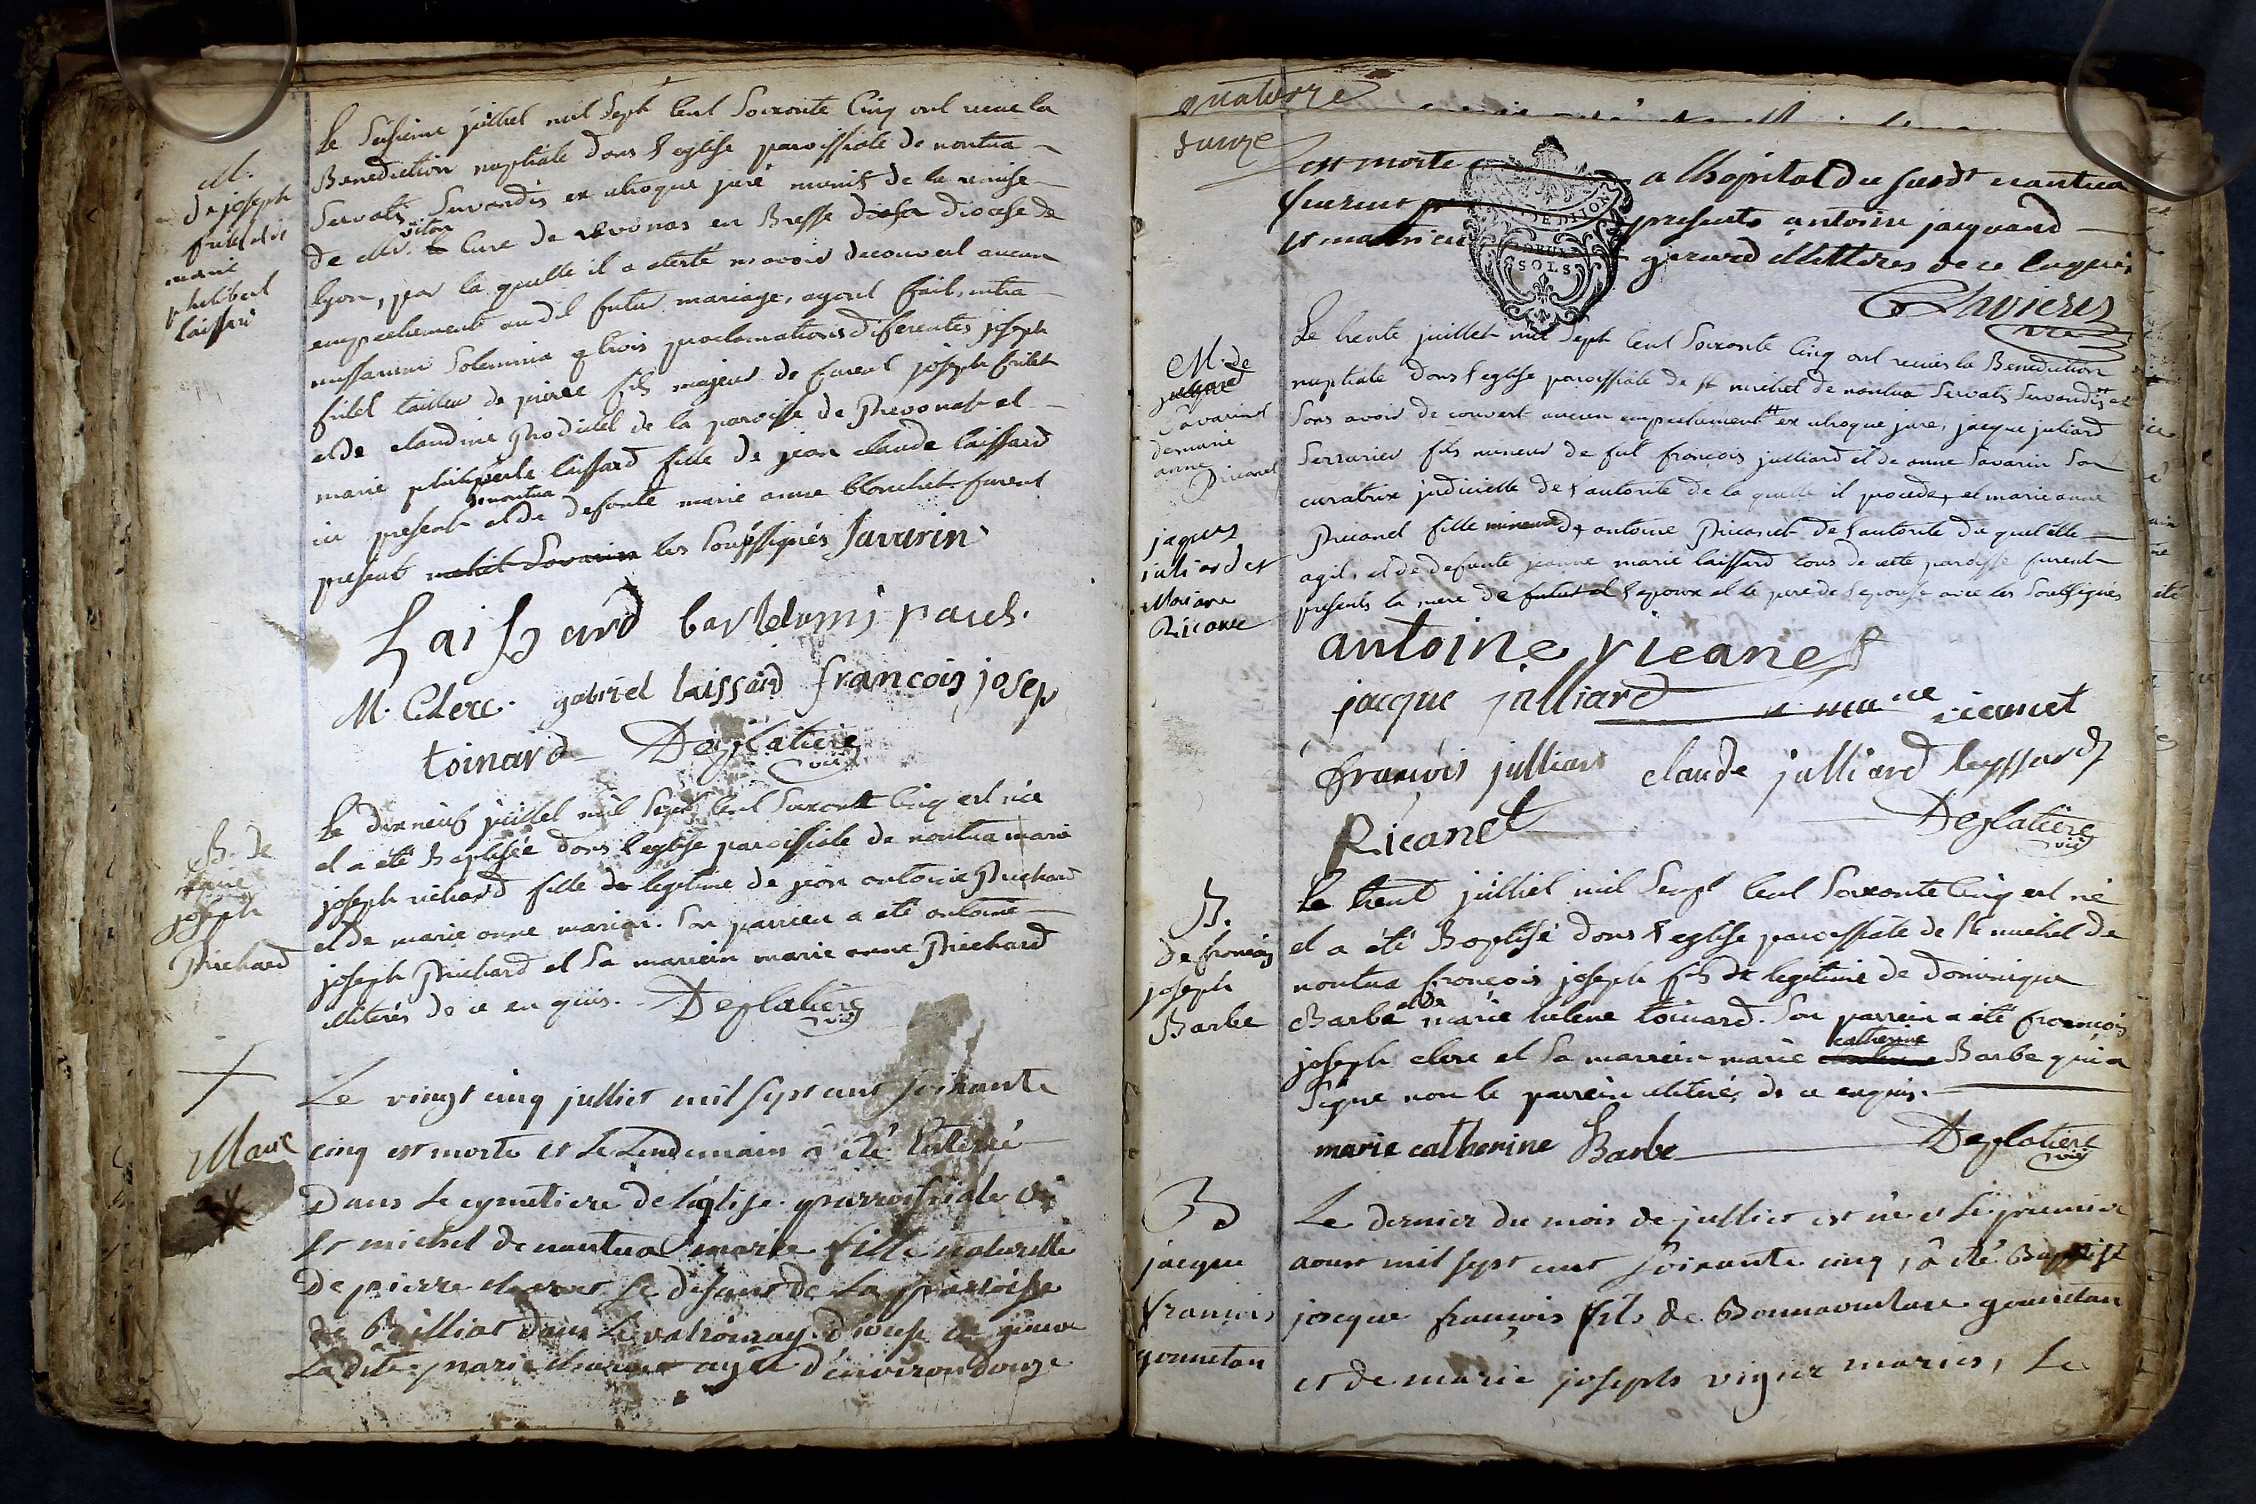 M.
de joseph
frilet et
marie
philibert
laissard
Le seisieme juillet mil sept cent soixante cinq ont recue la
Benediction nuptiale dans l'eglise paroissiale de nantua
servatis servandis ex utroque jure munis de la remise
de Mr. viton Curé de revonas en Bresse diocese de
lyon, par la quelle il a atesté n'avoir decouvert aucun
empechement au dit futur mariage, ayant fait, intra
missarum solemnia trois proclamations diferentes joseph
frilet tailleur de pierre fils majeur de furent joseph frilet
et de claudine Prodiatel de la paroisse de Prevonas et
marie philiperte laissard fille de jean claude laissard
ici present de nantua et de defunte marie anne blanchet furent
present michel Savarin les soussignés Savarin
Laissard bartelemi pauch.
M. Clerc. gabriel laissard francois josep
toinard Deplatiere
vic
B. de
marie
joseph
Richard
Le dix neuf juillet mil sept cent soixante cinq est née
et a été Baptisée dans l'eglise paroissiale de nantua marie
joseph richard fille legitime de jean antoine Richard
et de marie anne marion. Son parrein a été antoine
joseph Richard et sa marrein marie anne Richard
illiterés de ce enquis. Deplatiere
vic
Marie
Le vingt cinq julliet mil sept cent soixante
cinq est morte et Le Lendemain à été Enterré
Dans Le cymetiere de l'église parroissiale de
st michel de nantua marie fille naturelle
De pierre Le disant de La parroisse
de Billiat dans Le valromay diocese de geneve
Ladite marie agée d'environ douze
quatorze
douze
est morte a lhopital du susdt nantua
furent presents antoine jacquand
et gerard illitteres de ce enquis
Clavieres
vic
M. de
juliard
Savarin et
de marie
anne
Ricanet
jaques
juliard et
Mariane
Ricane
Le trente juillet mil sept cent soixante cinq ont recus la Benediction
nuptiale dans l'eglise paroissiale de st michel de nantua servatis servandis et
sans avoir decouvert aucun empechement ex utroque jure, jacque juliard
serrurier fils mineur de fut françois julliard et de anne Savarin son
curatrix judicielle de l'autorite de la quelle il procede, et marie anne
Ricanet fille mineure de antoine Ricanet de l'autorite du quel elle
agit, et de defunte jeanne marie laissard tous de cette paroisse furent
presents la mere de futut et l'epoux et le pere de l'epouse avec les soussignés
antoine ricanet
jacque julliard mane ricanet
françois julliard claude julliard leyssard
Ricanet Deplatiere
vic
B.
de françois
joseph
Barbe
Le trent julliet mil sept cent soixante cinq est né
et a été Baptisé dans l'eglise paroissiale de St michel de
nantua françois joseph fils legitime de dominique
Barbe et de marie helene toinard. Son parrein a été françois
joseph clerc et sa marrein marie catherine Barbe qui a
signe non le parrein illiteré, de ce enquis.
marie catherine Barbe Deplatiere
vic
B
jacque
françois
gounetan
Le dernier du mois de julliet est né et Le premier
aoust mil sept cent soixante cinq, à été Baptisé
jacque françois fils de Bonnaventure gounetan
et de marie joseph vigier mariés, Le